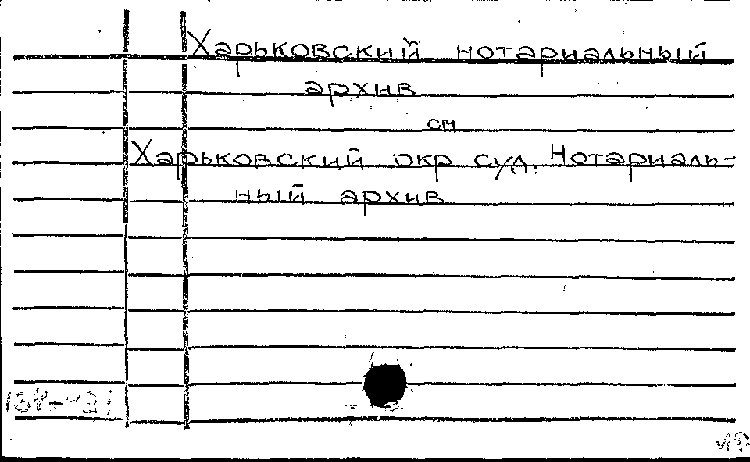 Харьковский нотариальный
архив
см
Харьковский окр суд. Нотариаль-
ный архив